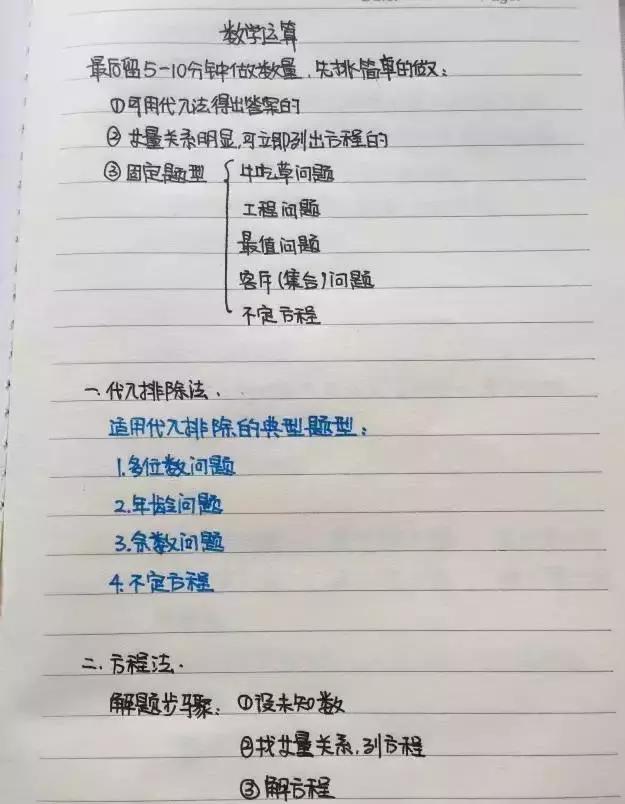 数学运算
最后留5-10分钟做数量,先挑简单的做:
①可用代入法得出答案的
②等量关系明显,可立即列出方程的
③固定题型 { 牛吃草问题
工程问题
最值问题
容斥(集合)问题
不定方程
一、代入排除法.
适用代入排除的典型题型:
1.多位数问题
2.年龄问题
3.余数问题
4.不定方程
二.方程法.
解题步骤:①设未知数
②找等量关系,列方程
③解方程